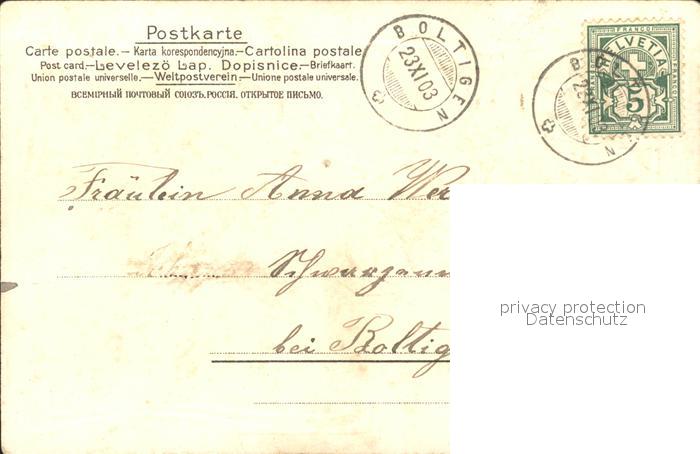 Postkarte
Carte postale.— Karta korespondencyjna.— Cartolina postale
Post card.—Levelező Lap. Dopisnice.—Briefkaart.
Union postale universelle.—Weltpostverein—Unione postale universale.
ВСЕМІРНЫЙ ПОЧТОВЫЙ СОЮЗЪ. РОССІЯ. ОТКРЫТОЕ ПИСЬМО.
BOLTIGEN
23XI03
FRANCO
HELVETIA
5
Fräulein Anna Wer
bei Boltig
privacy protection
Datenschutz